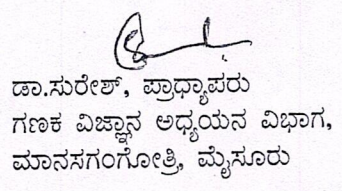 ಡಾ.ಸುರೇಶ್, ಪ್ರಾಧ್ಯಾಪರು
ಗಣಕ ವಿಜ್ಞಾನ ಅಧ್ಯಯನ ವಿಭಾಗ,
ಮಾನಸಗಂಗೋತ್ರಿ, ಮೈಸೂರು